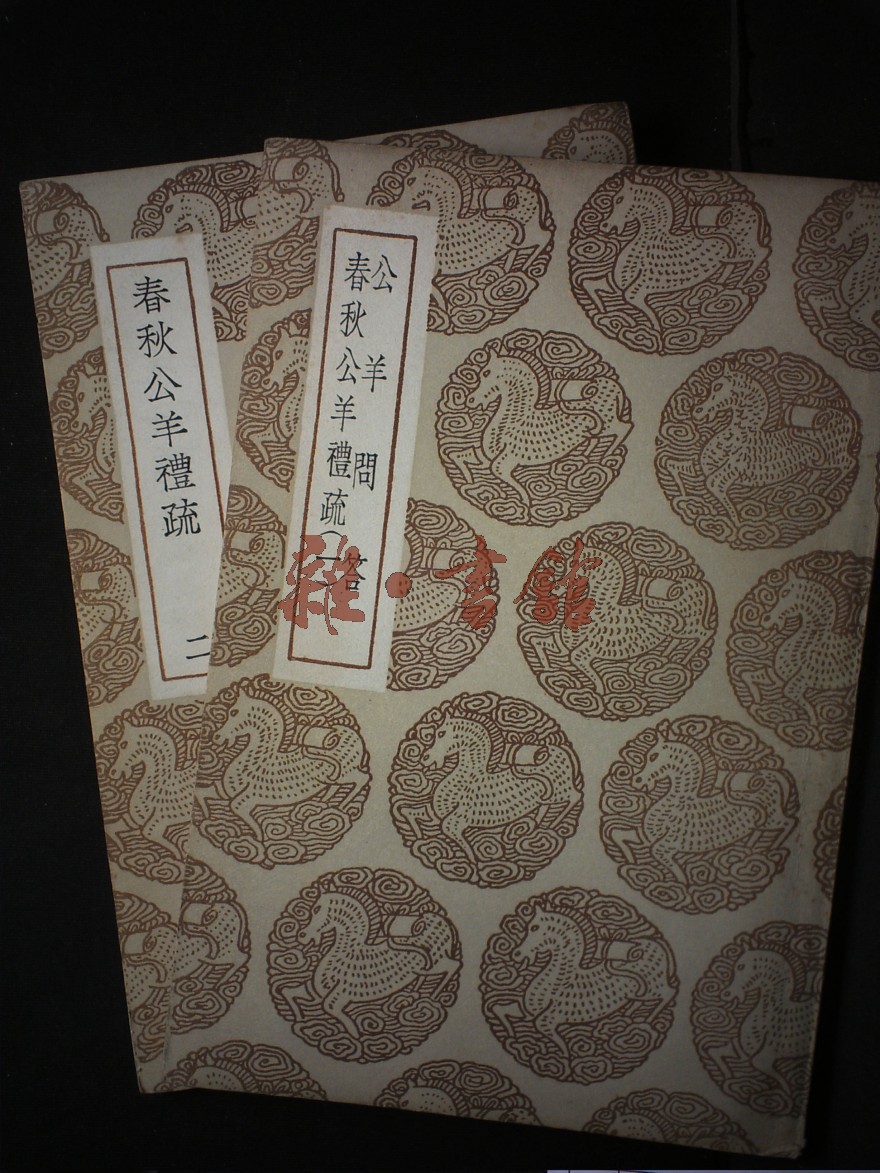 春秋公羊禮疏
二
公羊問答
春秋公羊禮疏(一)
雜·書館